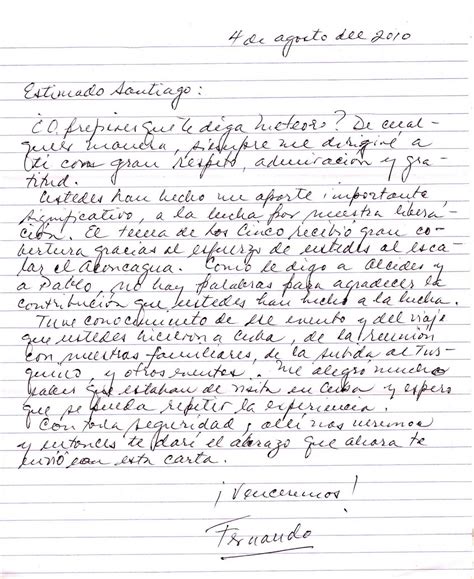 4 de agosto del 2010
Estimado Santiago:
¿O prefieres que te diga Meteoro? De cual-
quier manera, siempre me dirigiré a
ti con gran respeto, admiración y gra-
titud.
Ustedes han hecho un aporte importante,
significativo, a la lucha por nuestra libera-
ción. El tema de los Cinco recibió gran co-
bertura gracias al esfuerzo de ustedes al esca-
lar el Aconcagua. Como le digo a Alcides y
a Pablo, no hay palabras para agradecer la
contribución que ustedes han hecho a la lucha.
Tuve conocimiento de ese evento y del viaje
que ustedes hicieron a Cuba, de la reunión
con nuestros familiares, de la subida al Tur-
quino y otros eventos. Me alegró mucho
saber que estaban de visita en Cuba y espero
que se pueda repetir la experiencia.
Con toda seguridad, allí nos veremos
y entonces te daré el abrazo que ahora te
envío con esta carta.
¡Venceremos!
Fernando